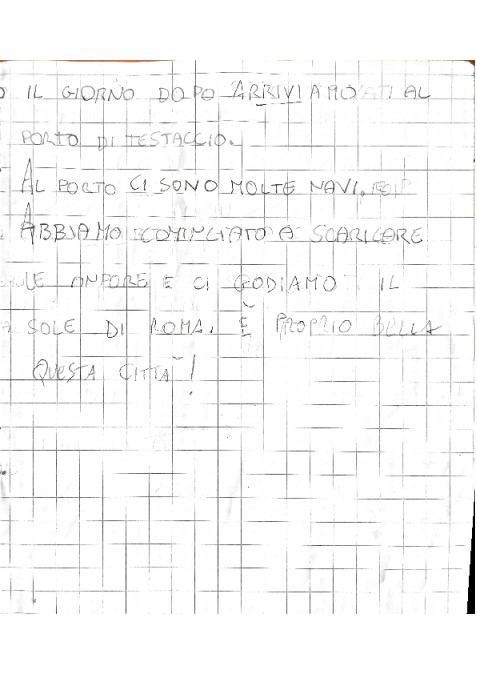 IL GIORNO DOPO ARRIVIAMO AL
PORTO DI TESTACCIO.
AL PORTO CI SONO MOLTE NAVI.
ABBIAMO COMINCIATO A SCARICARE
LE ANFORE E CI GODIAMO IL
SOLE DI ROMA. È PROPRIO BELLA
QUESTA CITTA'!